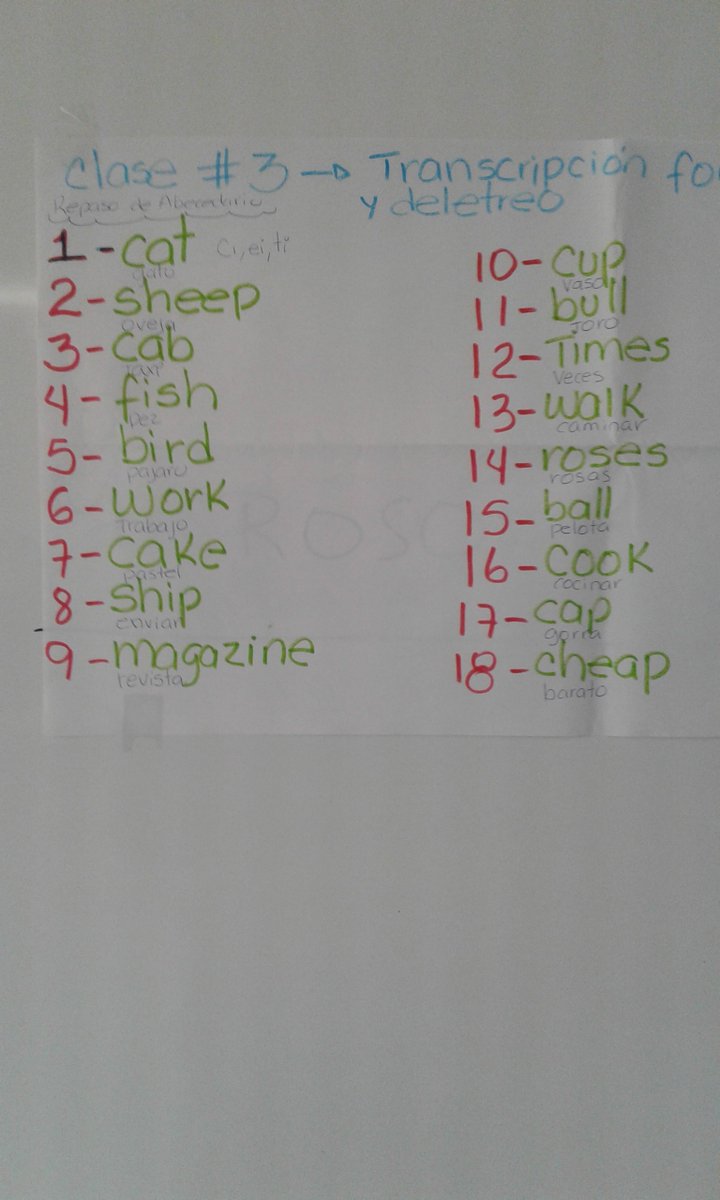 Clase # 3 → Transcripción fo
y deletreo
Repaso de Abecedario
1 - cat ci, ei, ti
gato
2 - sheep
oveja
3 - cab
taxi
4 - fish
pez
5 - bird
pajaro
6 - work
Trabajo
7 - cake
pastel
8 - ship
enviar
9 - magazine
revista
10 - cup
vaso
11 - bull
Toro
12 - Times
veces
13 - walk
caminar
14 - roses
rosas
15 - ball
pelota
16 - cook
cocinar
17 - cap
gorra
18 - cheap
barato